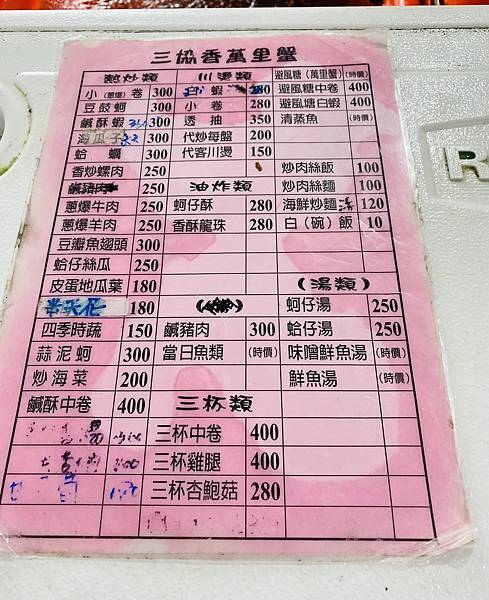 三協香萬里蟹
熱炒類 川燙類 避風糖(萬里蟹) (時價)
小(蔥爆)卷 300 白蝦 280 避風糖中卷 400
豆鼓蚵 300 小卷 280 避風塘白蝦 400
鹹酥蝦 300 透抽 350 清蒸魚 (時價)
海瓜子 代炒每盤 200
蛤蠣 300 代客川燙 150
香炒螺肉 250 炒肉絲飯 100
鹹豬肉 250 油炸類 炒肉絲麵 100
蔥爆牛肉 250 蚵仔酥 280 海鮮炒麵 120
蔥爆羊肉 250 香酥龍珠 280 白(碗)飯 10
豆瓣魚翅頭 300
蛤仔絲瓜 250
皮蛋地瓜葉 180 (湯類)
半天花 180 蚵仔湯 250
四季時蔬 150 鹹豬肉 300 蛤仔湯 250
蒜泥蚵 300 當日魚類 (時價) 味噌鮮魚湯 (時價)
炒海菜 200 鮮魚湯 (時價)
鹹酥中卷 400 三杯類
三杯中卷 400
三杯雞腿 400
三杯杏鮑菇 280
R